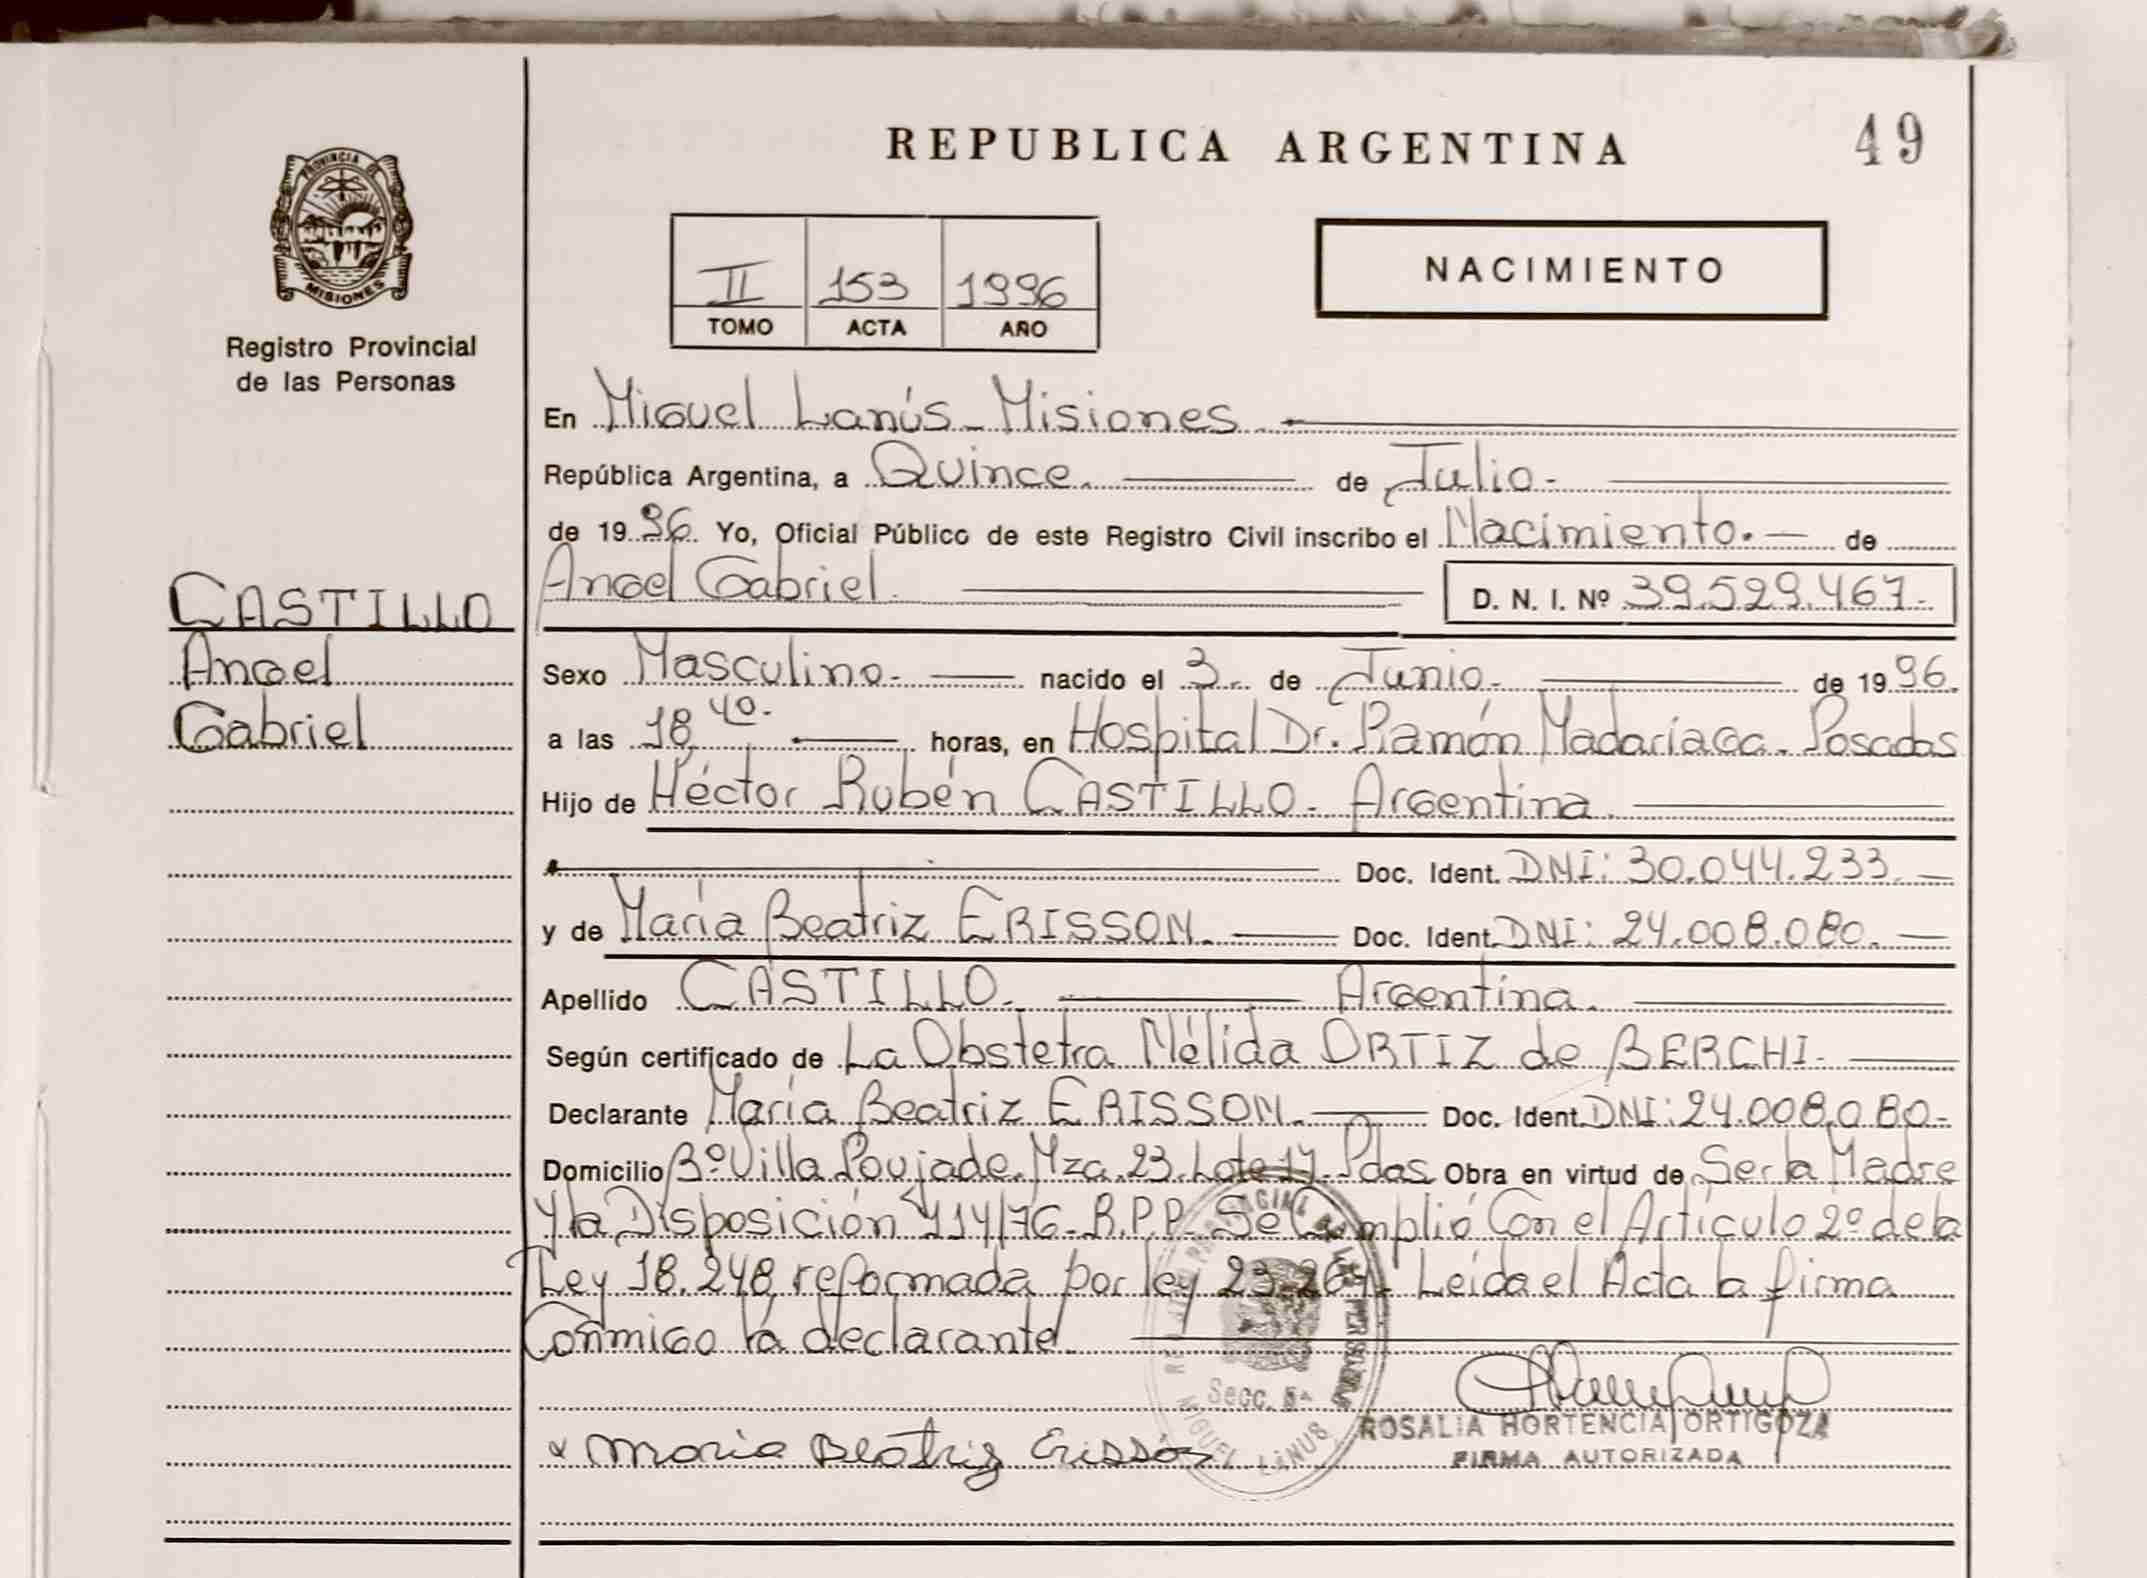 REPUBLICA ARGENTINA
49
PROVINCIA DE
MISIONES
Registro Provincial
de las Personas
II 153 1996
TOMO ACTA AÑO
NACIMIENTO
En Miguel Lanús - Misiones
República Argentina, a Quince. de Julio.
de 1996. Yo, Oficial Público de este Registro Civil inscribo el Nacimiento. de
CASTILLO
Angel
Gabriel
Angel Gabriel. D. N. I. Nº 39.529.467.
Sexo Masculino. nacido el 3. de Junio. de 1996.
a las 18,40. horas, en Hospital Dr. Ramón Madariaga. Posadas
Hijo de Héctor Rubén CASTILLO. Argentina.
Doc. Ident. DNI: 30.044.233.
y de María Beatriz ERISSON. Doc. Ident. DNI: 24.008.080.
Apellido CASTILLO. Argentina.
Según certificado de La Obstetra Nélida ORTIZ de BERCHI.
Declarante María Beatriz ERISSON. Doc. Ident. DNI: 24.008.080.
Domicilio Bº Villa Poujade. Mza. 23. Lote 17. Pdas Obra en virtud de Ser la Madre
y la Disposición 114/76. R.P.P. Se Cumplió Con el Artículo 2º de la
Ley 18.248, reformada por ley 23.264. Leída el Acta la firma
Conmigo la declarante.
Secc. 5ª
MIGUEL LANUS
ROSALIA HORTENCIA ORTIGOZA
FIRMA AUTORIZADA
x Maria Beatriz Erisson